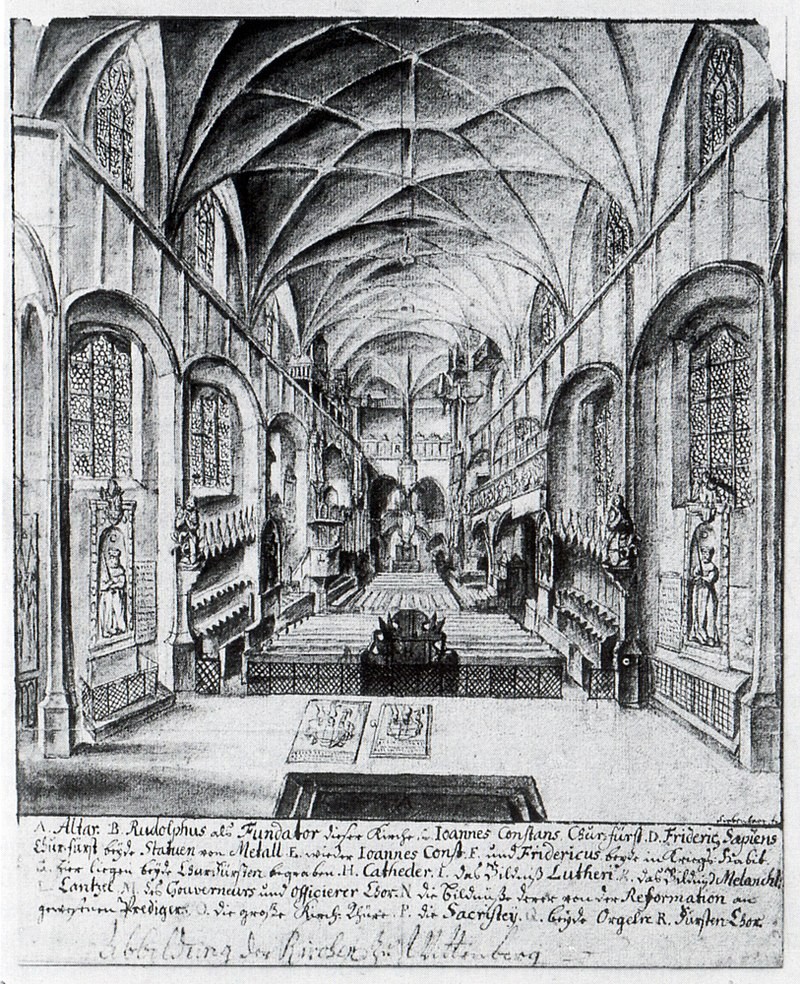 A. Altar. B. Rudolphus als Fundator dieser Kirche. u Ioannes Constans. Churfürst. D. Frideric, Sapiens
Churfürst beyde Statuen von Metall. E. wieder Ioannes Const. F. und Fridericus beyde in Kriegs habit.
hier liegen beyde Churfürsten begraben. H. Catheder. I. das Bildniß Lutheri. K. das Bildniß Melancht.
L. Cantzel. M. des Gouverneurs und Officierer Chor. N die Bildnuße derer von der Reformation an
gewesenen Prediger. O. die große Kirch Thüre. P. die Sacristey. Q. beyde Orgeln. R. Fürsten Chor.
Abbildung der Kirchen zu Wittenberg